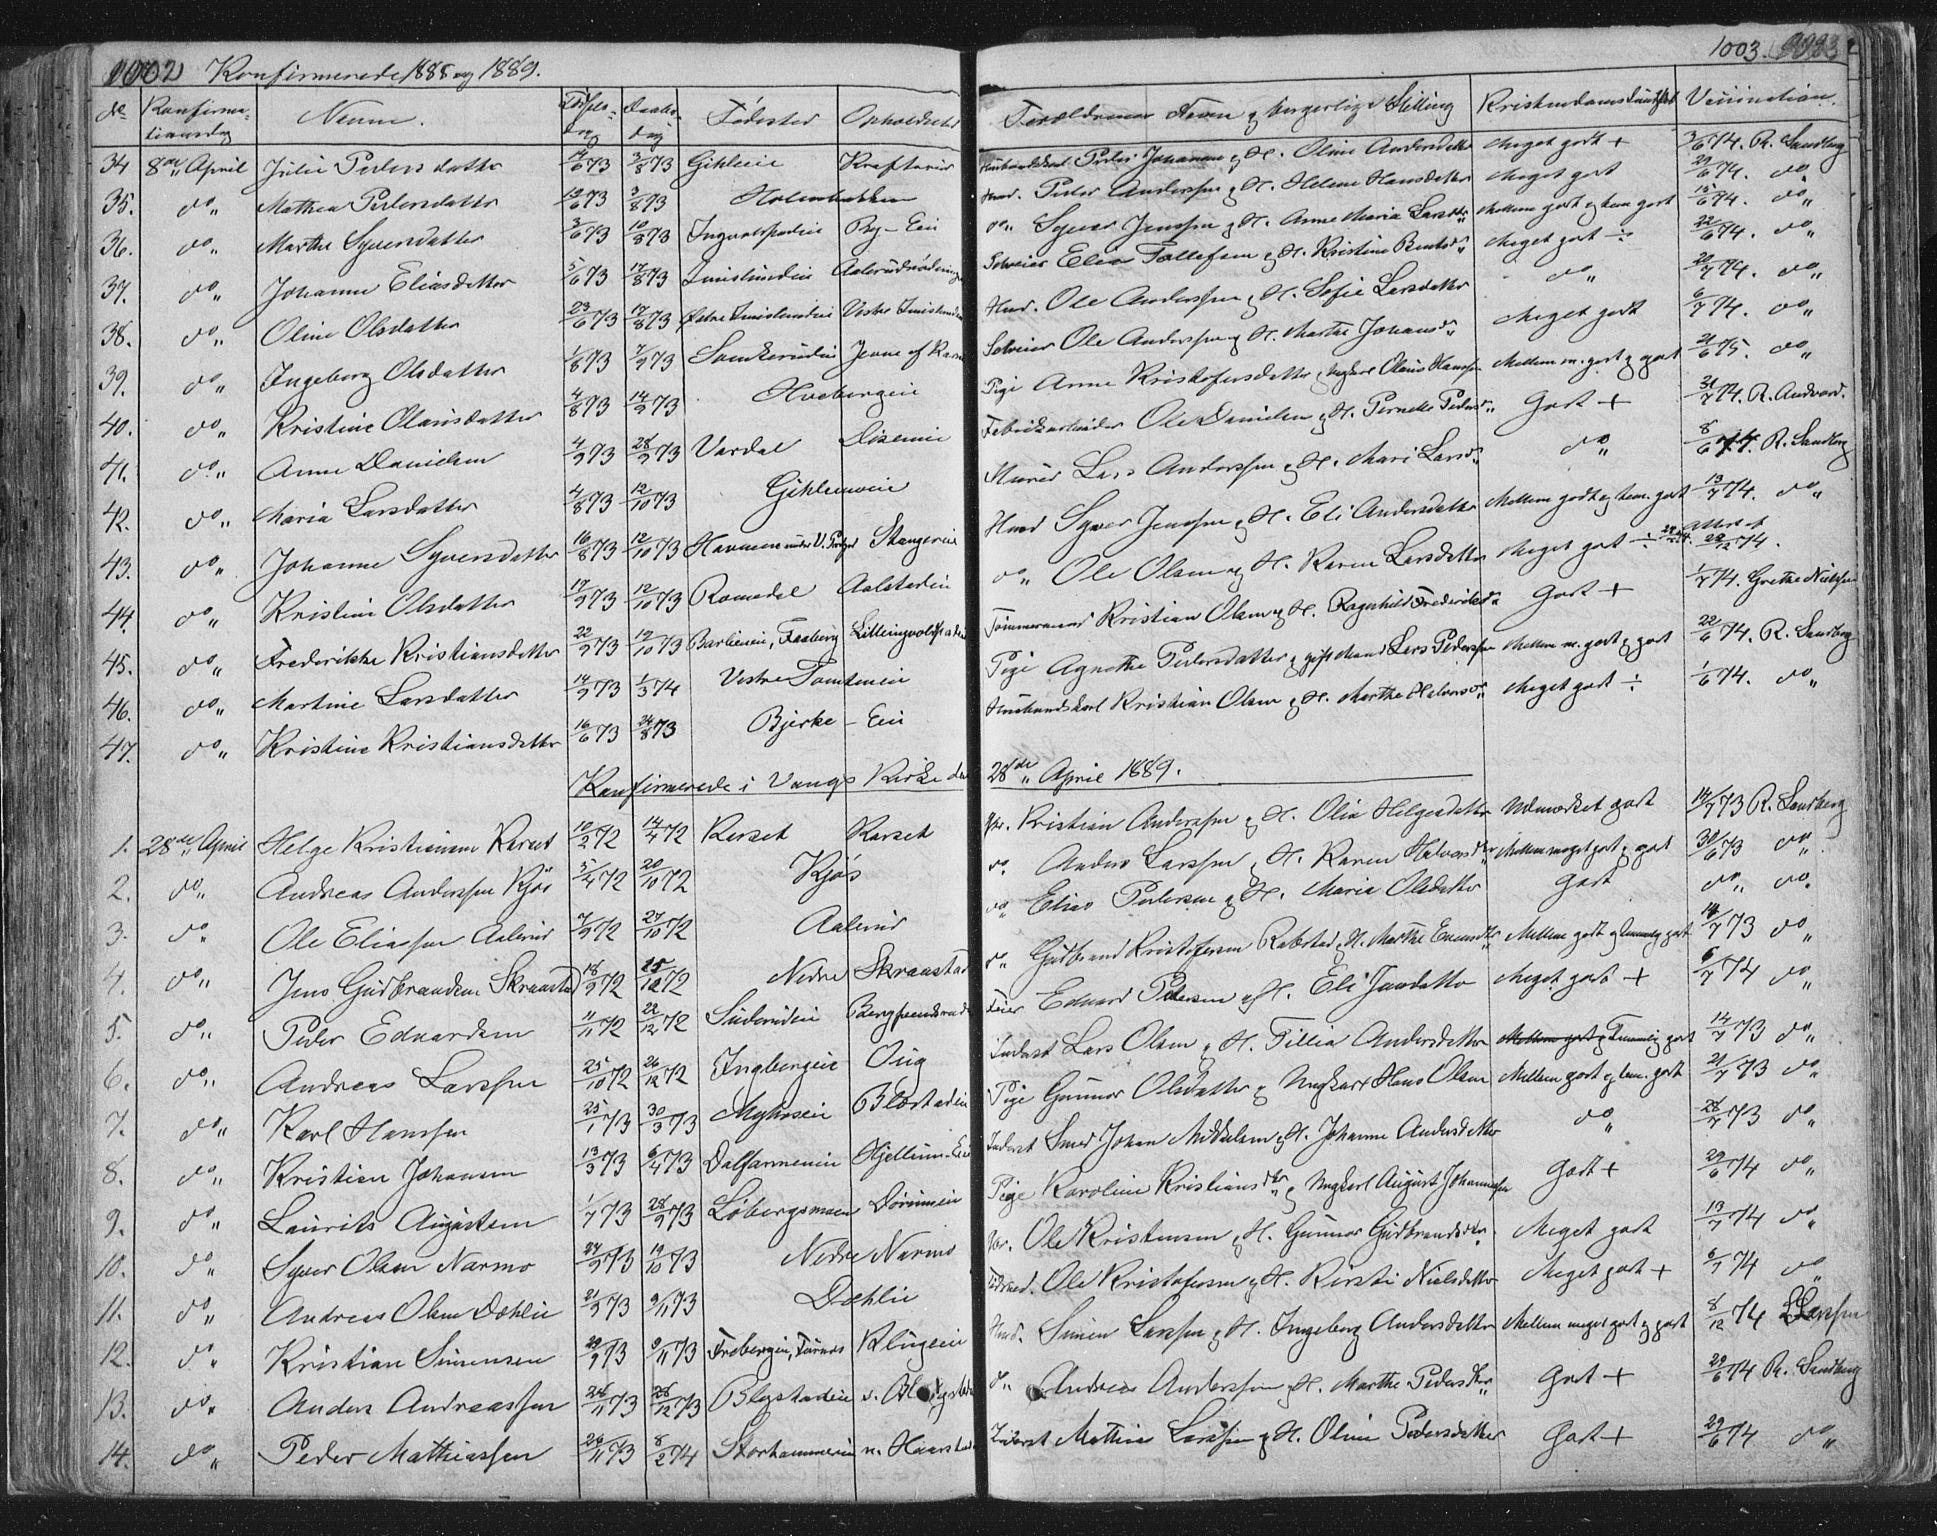 1002 Konfirmerede 1888 og 1889.
1003.
No Konfirmationsdag Navne. Fødselsdag Daabsdag Fødested Opholdssted Forældrenes Navne og borgerlige Stilling Kristendomskundskab Vaccination.
34 8de April Julie Pedersdatter 14/6 73 3/8 73 Gihleeie Husmandskarl Peder Johansen og H. Oline Andersdatter Meget godt + 3/6 74. R. Sandberg
35. do Mathea Pedersdatter 10/6 73 3/8 73 Holmbakken Husmd. Peder Anderssen og H. Helene Hansdatter Meget godt 29/6 74. do
36. do Marthe Syversdatter 3/6 73 10/8 73 Ingvoldstadeie By-Eie do Syver Jenssen og H. Anne Maria Larsdtr Mellem godt og tem. godt 15/6 74. do
37. do Johanne Eliasdatter 5/6 73 17/8 73 Imislundeie Selveier Elias Tollefsen og H. Kristine Bentsd. Meget godt ÷ 22/6 74. do
38. do Oline Olsdatter 23/6 73 17/8 73 Østre Imislundeie Vestre Imislund Husmd. Ole Anderssen og H. Sofie Larsdatter do 20/7 74. do
39. do Ingeborg Olsdatter 1/8 73 7/9 73 Jenne af Selveier Ole Anderssen og H. Marthe Johansd. Meget godt 6/7 74. do
40. do Kristine Olausdatter 4/8 73 14/9 73 Hvebergeie Pige Anne Kristofersdatter og Ungkarl Olaus Hanssen Mellem m. godt og godt 21/6 75. do
41. do Anne Danielsen 4/9 73 28/9 73 Vardal Diseneie Fabrikarbeider Ole Danielsen og H. Pernelle Pedersd. Godt + 31/7 74. R. Andvord.
42. do Maria Larsdatter 4/8 73 12/10 73 Gihleeneie Murer Lars Anderssen og H. Mari Larsd. do 8/6 74. R. Sandberg
43. do Johanne Syversdatter 16/8 73 12/10 73 Havnen under V. Stangeeie Husmd Syver Jenssen og H. Eli Andersdatter Mellem godt og tem. godt 13/7 74. do
44. do Kristine Olsdatter 17/9 73 12/10 73 Romedal Aalstadeie do Ole Olsen og H. Karen Larsdatter Meget godt ÷ attest 22/12 74.
45. do Frederikke Kristiansdatter 22/9 73 19/10 73 Faaberg Tømmermand Kristian Olsen og H. Ragnhild Frederiksd. Godt + 1/7 74. Grethe Nielssen
46. do Martine Larsdatter 14/9 73 1/3 74 Vestre Tomteneie Pige Agnethe Pedersdatter og gift Mand Lars Pederssen Mellem m. godt og godt 22/6 74. R. Sandberg
47. do Kristine Kristiansdatter 16/6 73 24/8 73 Bjerke-Eie Husmandskarl Kristian Olsen og H. Marthe Halvorsd. Meget godt ÷ 1/6 74. do
Konfirmerede i Vangs Kirke den 28de April 1889.
1. 28de April Helge Kristiansen Karset 10/2 72 14/4 72 Karset Karset Gbr. Kristian Anderssen og H. Olia Helgesdatter Udmærket godt 14/7 73 R. Sandberg
2. do Andreas Anderssen Kjøs 5/4 72 20/10 72 Kjøs do Anders Larssen og H. Karen Halvorsdtr Mellem meget godt og godt 30/6 73 do
3. do Ole Eliassen Aalerud 7/9 72 27/10 72 Aalerud do Elias Pedersen og H. Maria Olsdatter Godt do do
4. do Jens Gudbrandsen Skraastad 18/9 72 15/12 72 Nedre Skraastad do Gudbrand Kristofersen Rabstad og H. Marthe Evensdtr Mellem godt og temmelig godt 14/7 73 do
5. do Peder Edvardsen 11/11 72 22/12 72 Feier Edvard Pedersen og H. Eli Jansdatter Meget godt + 6/7 74 do
6. do Andreas Larssen 25/10 72 26/12 72 Ingbergeie Ouig Inderst Lars Olsen og H. Tillia Andersdatter Temmelig godt 14/7 73 do
7. do Karl Hanssen 25/1 73 30/3 73 Myhrseie Blæstadeie Pige Gunnor Olsdatter og Ungkarl Hans Olsen Mellem godt og tem. godt 21/7 73 do
8. do Kristian Johansen 13/3 73 6/4 73 Dalfarmeneie Hjellum-Eie Inderst Smed Johan Mikkelsen og H. Johanne Andersdatter do 28/7 73 do
9. do Laurits Augustsen 1/7 73 28/9 73 Løbergsmoen Dørumeie Pige Karoline Kristiansdtr og Ungkarl August Johannessen Godt + 29/6 74 do
10. do Syver Olsen Narmo 24/9 73 19/10 73 Nedre Narmo Gbr. Ole Kristensen og H. Gunnor Gudbrandsdtr. Meget godt 13/7 74 do
11. do Andreas Olsen Dæhlie 21/9 73 9/11 73 Dæhlie Ole Kristofersen og H. Kirsti Nielsdatter Meget godt + 6/7 74 do
12. do Kristian Simensen 29/9 73 9/11 73 Frøbergeie, Furnes Klugeie Husmd. Simen Larssen og H. Ingeborg Andersdatter Mellem meget godt og godt 8/12 74 Larssen
13. do Anders Andreassen 26/11 73 26/12 73 Blystadeie do Andreas Anderssen og H. Marthe Pedersdtr Godt + 29/6 74 R. Sandberg
14. do Peder Mathiassen 26/11 73 8/2 74 Storhammereie Inderst Mathias Larssen og H. Oline Pedersdatter Godt + 29/6 74 do